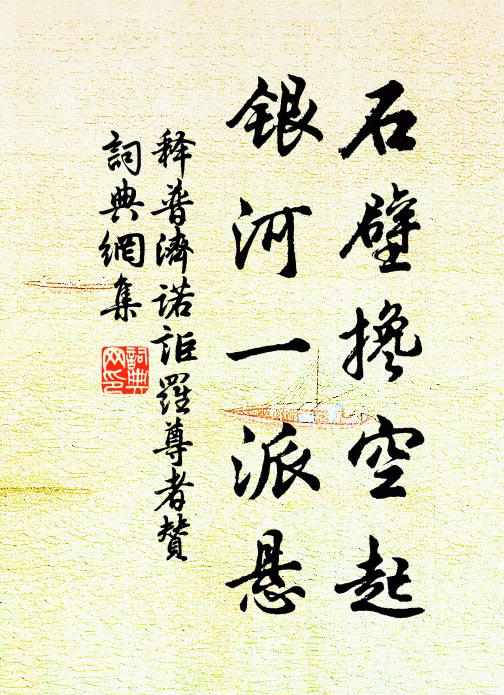 石壁搀空起
银河一派悬
释普濟诺詎羅尊者赞
詞典網集
詞典
网印